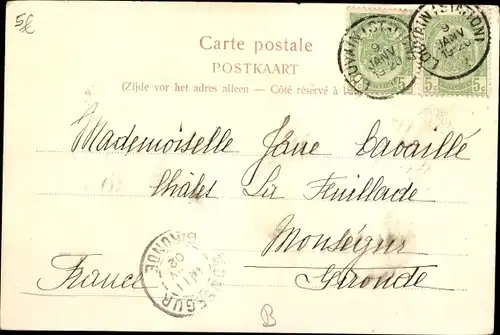 5£
Carte postale
POSTKAART
(Zijde voor het adres alleen — Côté réservé à
LOUVAIN (STATION)
9
JANV
LOUVAIN (STATION)
9
JANV
5c
5c
Mademoiselle Jane Cavaillé
Châlet La Feuillade
Monségur
Gironde
France
MONSEGUR
GIRONDE
02
B